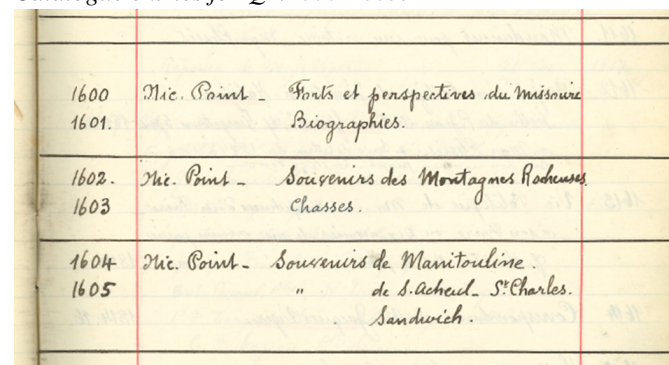 1600 Nic. Point - Forts et perspectives du Missoire
1601. Biographies.
1602. Nic. Point - Souvenirs des Montagnes Rocheuses.
1603 Chasses.
1604 Nic. Point - Souvenirs de Manitouline.
1605 " de S. Acheul - St Charles.
Sandwich.